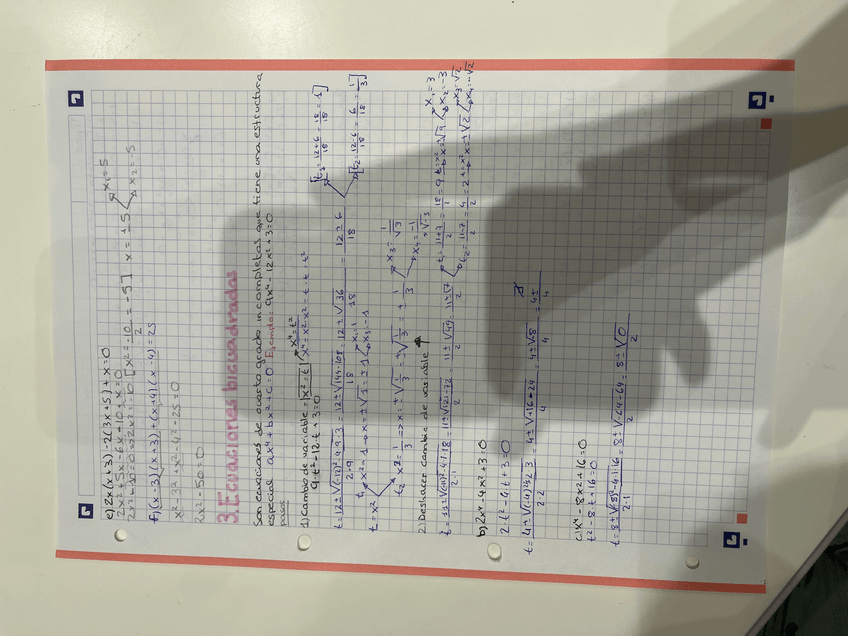 e) 2x(x+3)-2(3x+5)+x=0
2x²+5x-6x+10+x=0
2x²+10=0 → 2x²=-10 [x²=-10/2=-5] x=±5 → x₁=5
x₂=-5
f) (x-3)(x+3)+(x+4)(x-4)=25
x²-3²+x²-4²-25=0
2x²-50=0
3. Ecuaciones bicuadradas
Son ecuaciones de cuarto grado incompletas que tiene una estructura
especial ax⁴+bx²+c=0 Ejemplo: 9x⁴-12x²+3=0
pasos
1) Cambio de variable = x²=t x⁴=t²
x⁴=x²·x²=t·t=t²
9·t²-12·t+3=0
t=12±√(-12)²-4·9·3/2·9=12±√144-108/18=12±√36/18=12±6/18
[t₁=12+6/18=18/18=1]
[t₂=12-6/18=6/18=1/3]
t=x² t₁ x²=1→x=±√1=±1 x₁=1
x₂=-1
t₂ x²=1/3=>x=±√1/3=±√1/√3=±1/√3 x₃=1/√3
x₄=-1/√3
2) Deshacer cambio de variable
t=11±√(-11)²-4·1·18/2·1=11±√121-72/2=11±√49/2=11±7/2
t₁=11+7/2=18/2=9 t=x² x=±√9 x₁=3
x₂=-3
t₂=11-7/2=4/2=2 t=x² x=±√2 x₃=√2
x₄=-√2
b) 2x⁴-4x²+3=0
2t²-4t+3=0
t=4±√(-4)²-4·2·3/2·2=4±√-16+24/4=4±√8/4=4±/4
c) x⁴-8x²+16=0
t²-8t+16=0
t=8±√(-8)²-4·1·16/2·1=8±√-64-64/2=8±√0/2